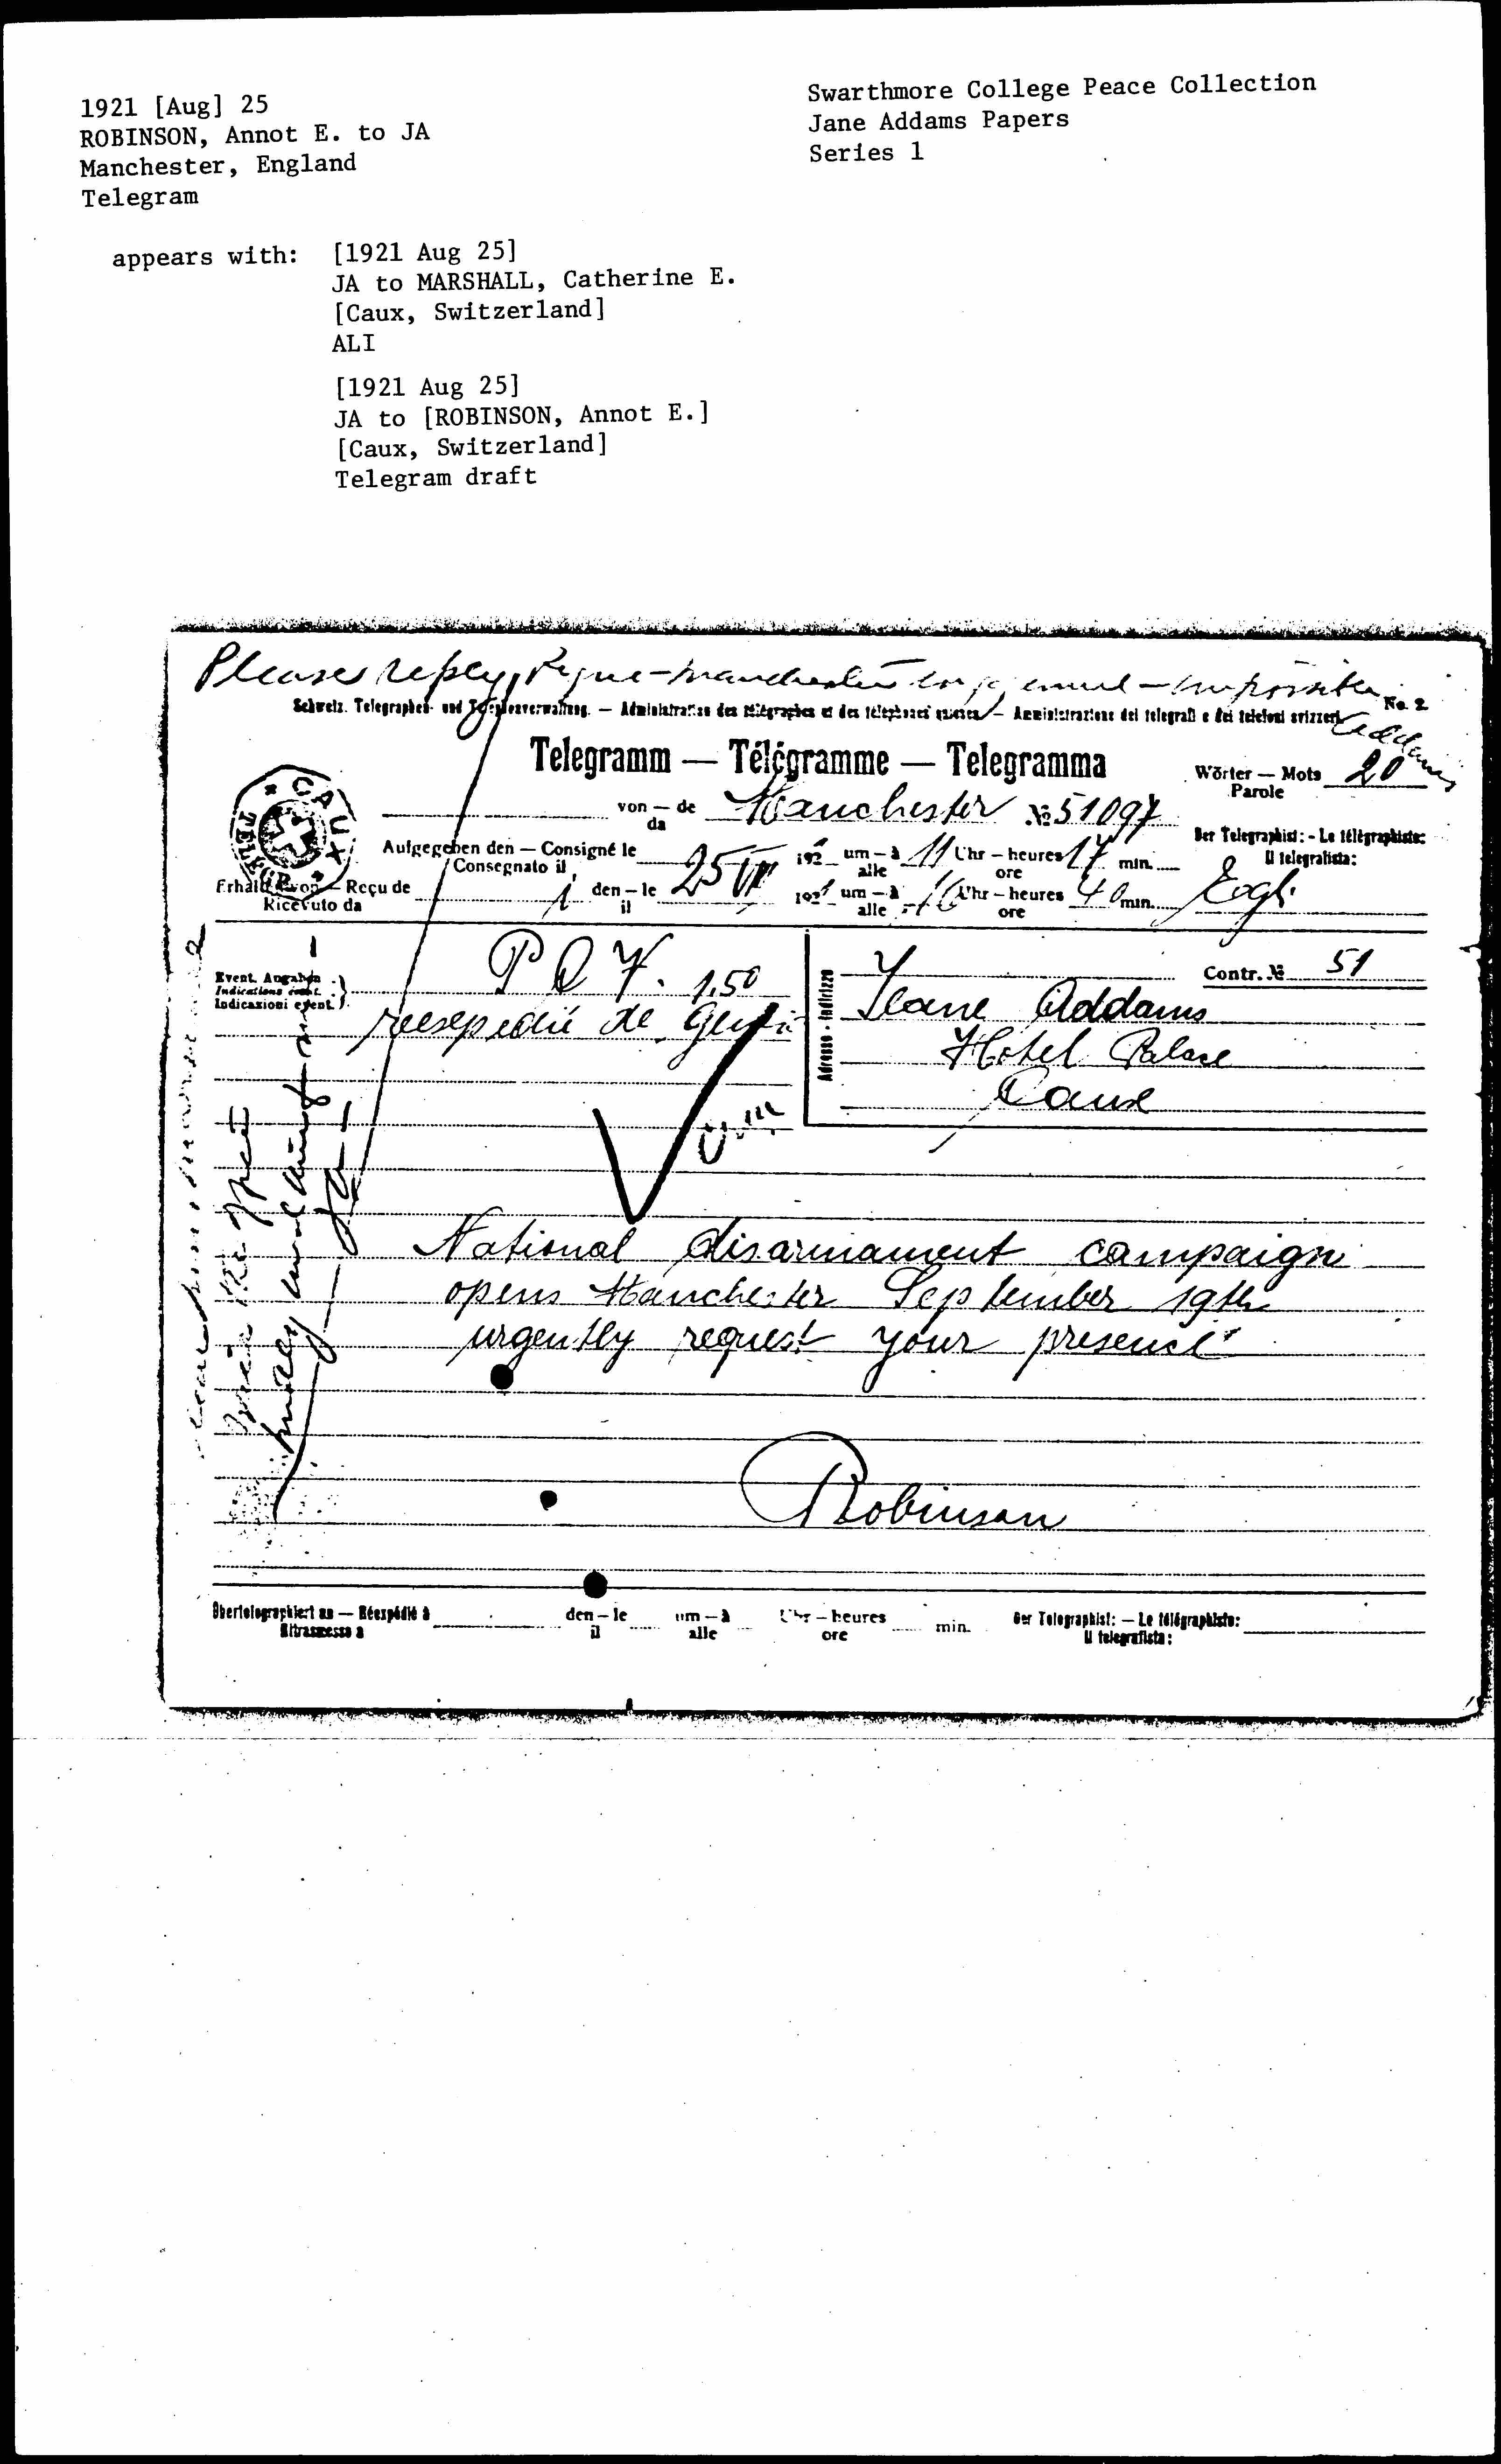 1921 [Aug] 25
ROBINSON, Annot E. to JA
Manchester, England
Telegram
Swarthmore College Peace Collection
Jane Addams Papers
Series 1
appears with: [1921 Aug 25]
JA to MARSHALL, Catherine E.
[Caux, Switzerland]
ALI
[1921 Aug 25]
JA to [ROBINSON, Annot E.]
[Caux, Switzerland]
Telegram draft
Please reply,
impossible
Addams
No. 2
Schweiz. Telegraphen- und Telephonverwaltung. — Administration des télégraphes et des téléphones suisses — Amministrazione dei telegrafi e dei telefoni svizzeri
Telegramm — Télégramme — Telegramma
Wörter — Mots 20
Parole
CAUX
TELEGR.
von — de Manchester № 51097
da
Der Telegraphist: - Le télégraphiste:
Il telegrafista:
Aufgegeben den — Consigné le 192 um — à 11 Uhr — heures 17 min.
Consegnato il alle ore
Erhalten von — Reçu de den — le 25 VIII 1921 um — à 16 Uhr — heures 40 min.
Ricevuto da il alle ore
Event. Angaben
Indications évent.
Indicazioni event.
1.50
de
Adresse - Indirizzo
Contr. № 51
Jeane Addams
Hotel Palace
Caux
C.M
National disarmament campaign
opens Manchester September 19th
urgently request your presence
Robinson
Übertelegraphiert an — Réexpédié à den — le um — à Uhr — heures min. Der Telegraphist: — Le télégraphiste:
Ritrasmesso a il alle ore Il telegrafista: